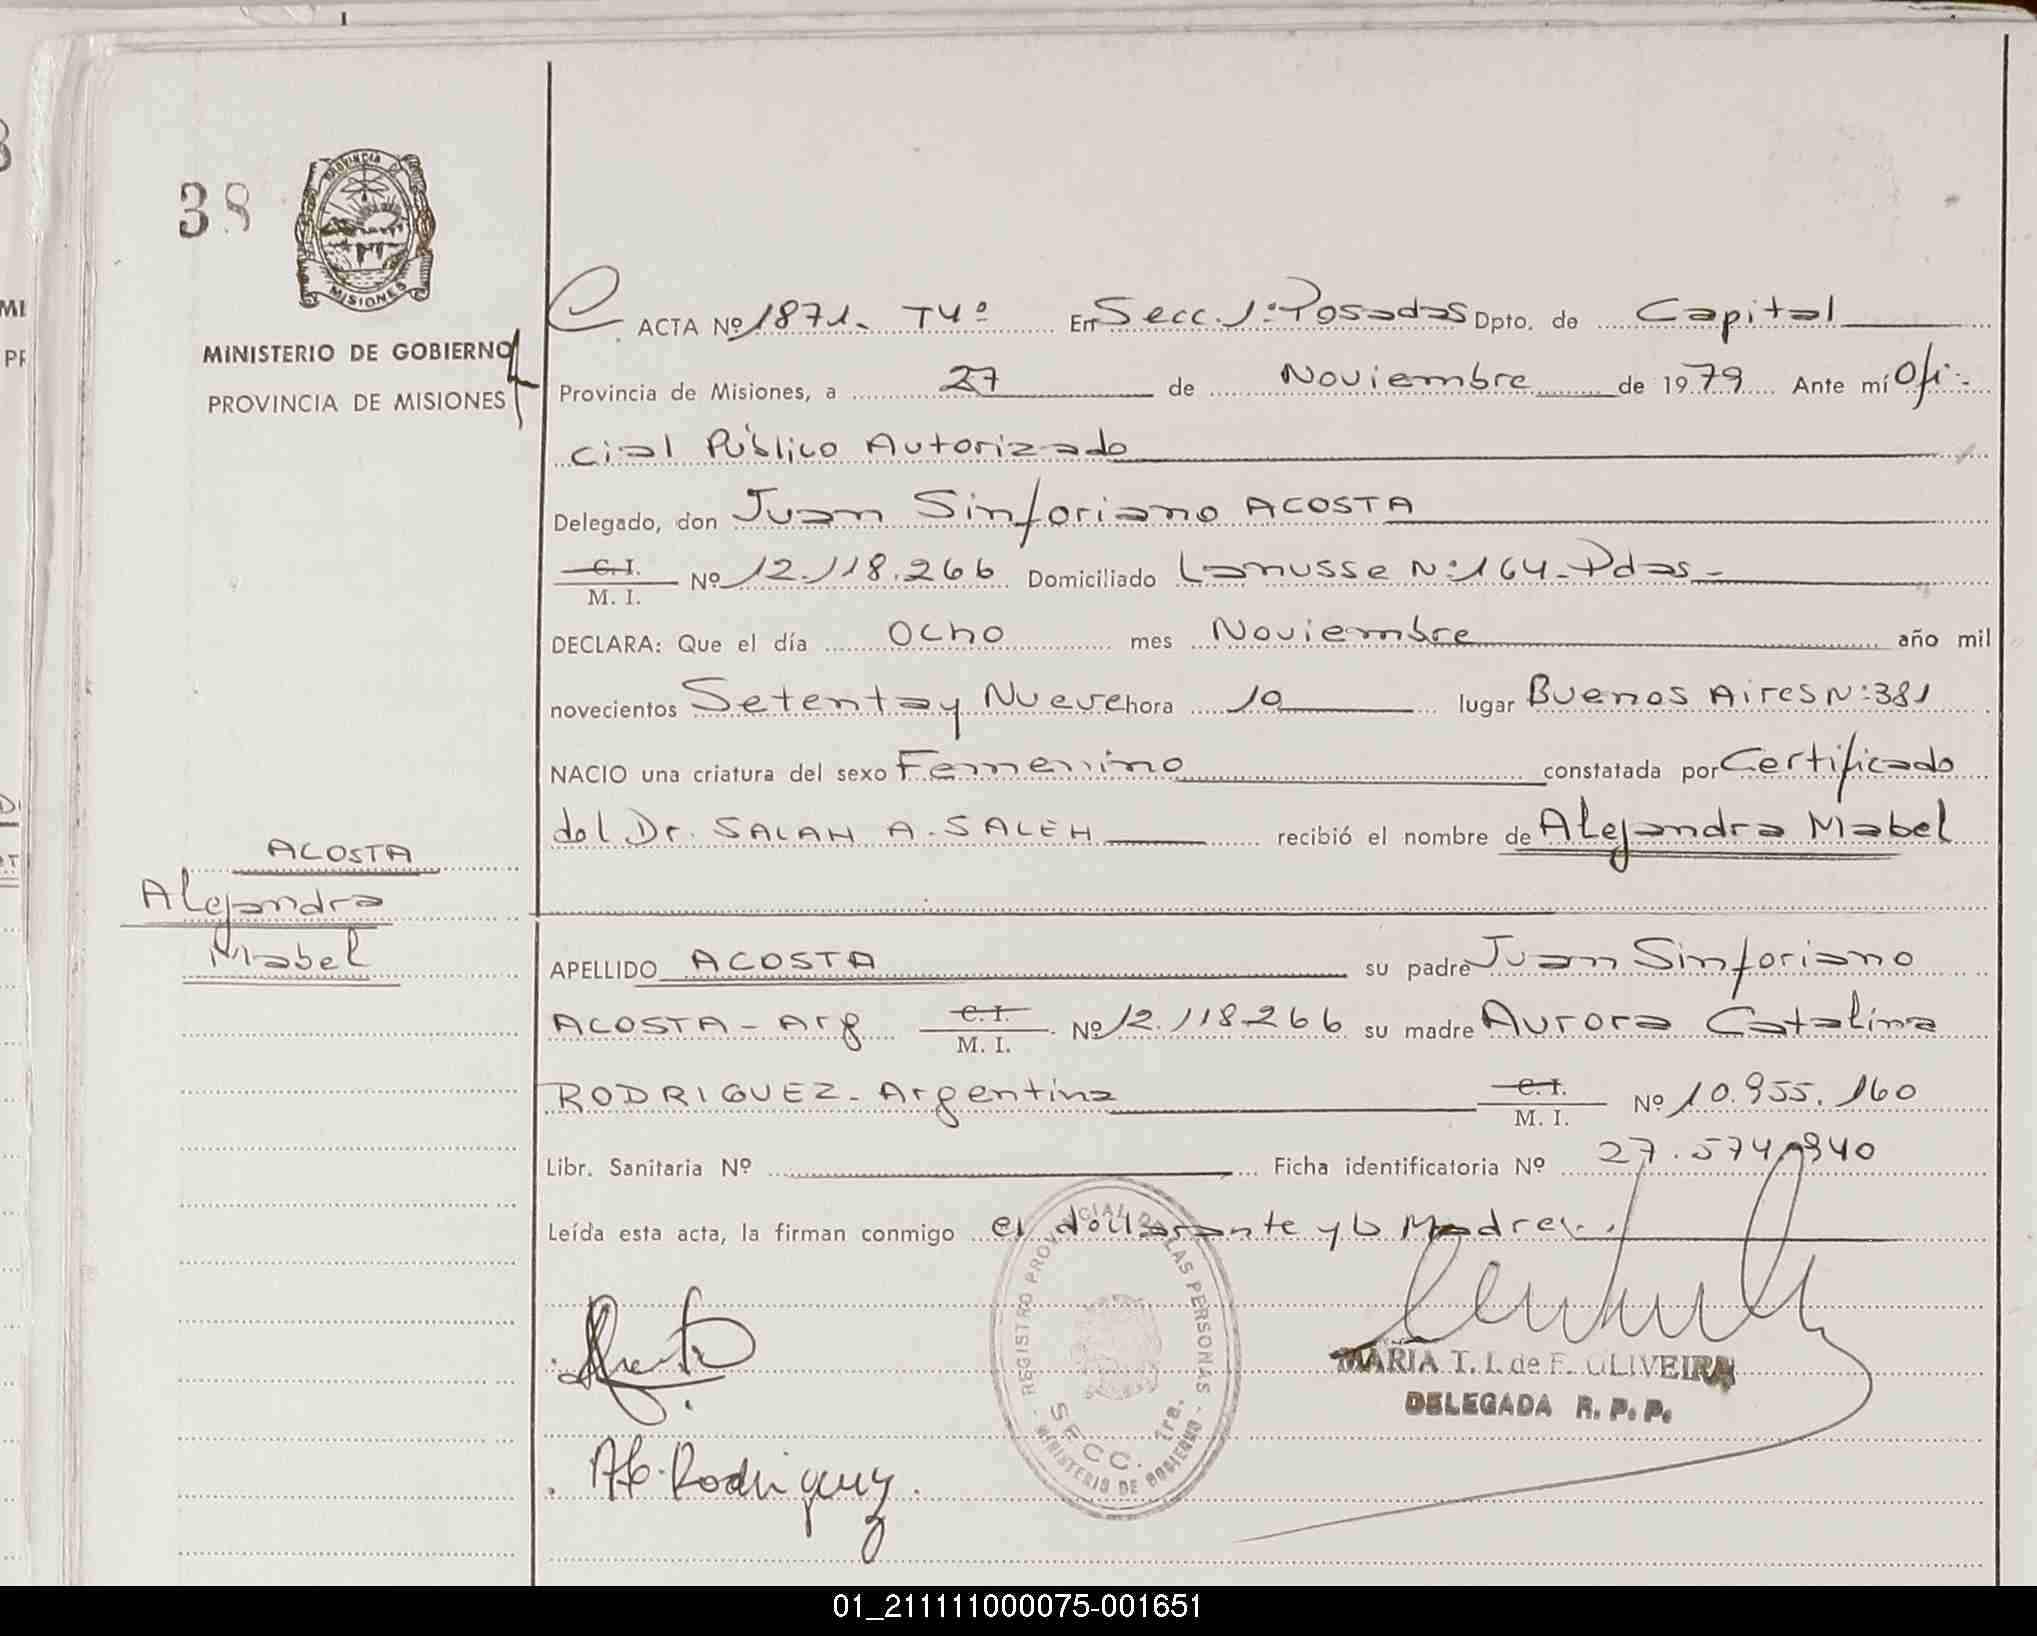 38
PROVINCIA DE
MISIONES
MINISTERIO DE GOBIERNO
PROVINCIA DE MISIONES
ACTA Nº 1871. T4º En Secc. 1ª Posadas Dpto. de Capital
Provincia de Misiones, a 27 de Noviembre de 1979 Ante mí Ofi-
cial Público Autorizado
Delegado, don Juan Sinforiano ACOSTA
C. I.
M. I. Nº 12.118.266 Domiciliado Lanusse Nº 164 - Pdas -
DECLARA: Que el día Ocho mes Noviembre año mil
novecientos Setenta y Nueve hora 10 lugar Buenos Aires Nº 381
NACIO una criatura del sexo Femenino constatada por Certificado
del Dr. SALAH A. SALEH recibió el nombre de Alejandra Mabel
ACOSTA
Alejandra
Mabel
APELLIDO ACOSTA su padre Juan Sinforiano
ACOSTA - Arg C. I. M. I. Nº 12.118.266 su madre Aurora Catalina
RODRIGUEZ - Argentina C. I. M. I. Nº 10.955.160
Libr. Sanitaria Nº Ficha identificatoria Nº 27.574.940
Leída esta acta, la firman conmigo el declarante y la Madre
REGISTRO PROVINCIAL DE LAS PERSONAS
SECC. 1ra.
MINISTERIO DE GOBIERNO
MARIA T. I. de F. OLIVEIRA
DELEGADA R. P. P.
Rodriguez
01_211111000075-001651